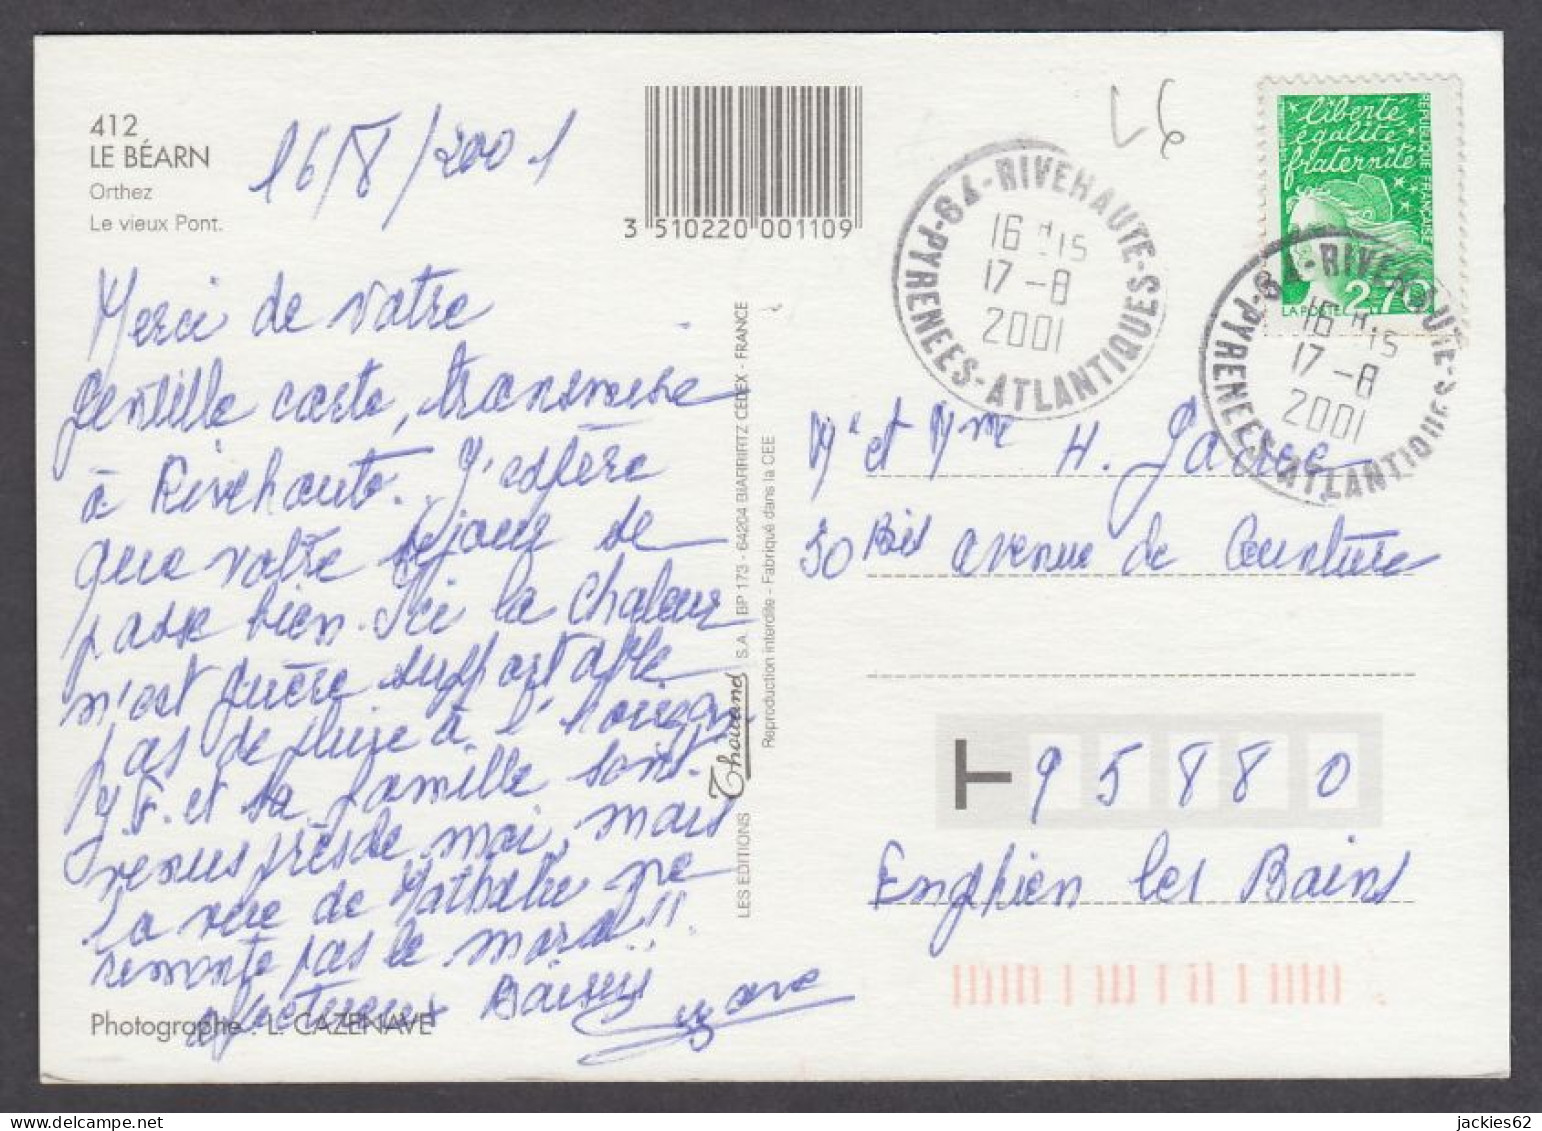 412
LE BÉARN
Orthez
Le vieux Pont.
16/8/2001
3 510220 001109
L6
liberté
égalité
fraternité
REPUBLIQUE FRANÇAISE
LA POSTE
2,70
64-RIVEHAUTE-S
PYRENEES-ATLANTIQUES
16 H 15
17-8
2001
64-RIVEHAUTE-S
PYRENEES-ATLANTIQUES
16 H 15
17-8
2001
Merci de votre
gentille carte, transmise
à Rivehaute. J'espère
que votre séjour se
passe bien. Ici la chaleur
n'est guère supportable
pas de pluie à l'horizon
et sa famille sont
venus près de moi, mais
la vue de Nathalie ne
remonte pas le moral!!
affectueux Baisers
Photographe : L. CAZENAVE
LES EDITIONS Thouand S.A. BP 173 - 64204 BIARRIRTZ CEDEX - FRANCE
Reproduction interdite - Fabriqué dans la CEE
Mr et Mme H.
30 Bis avenue de Ceinture
T 95880
Enghien les Bains
jackies62